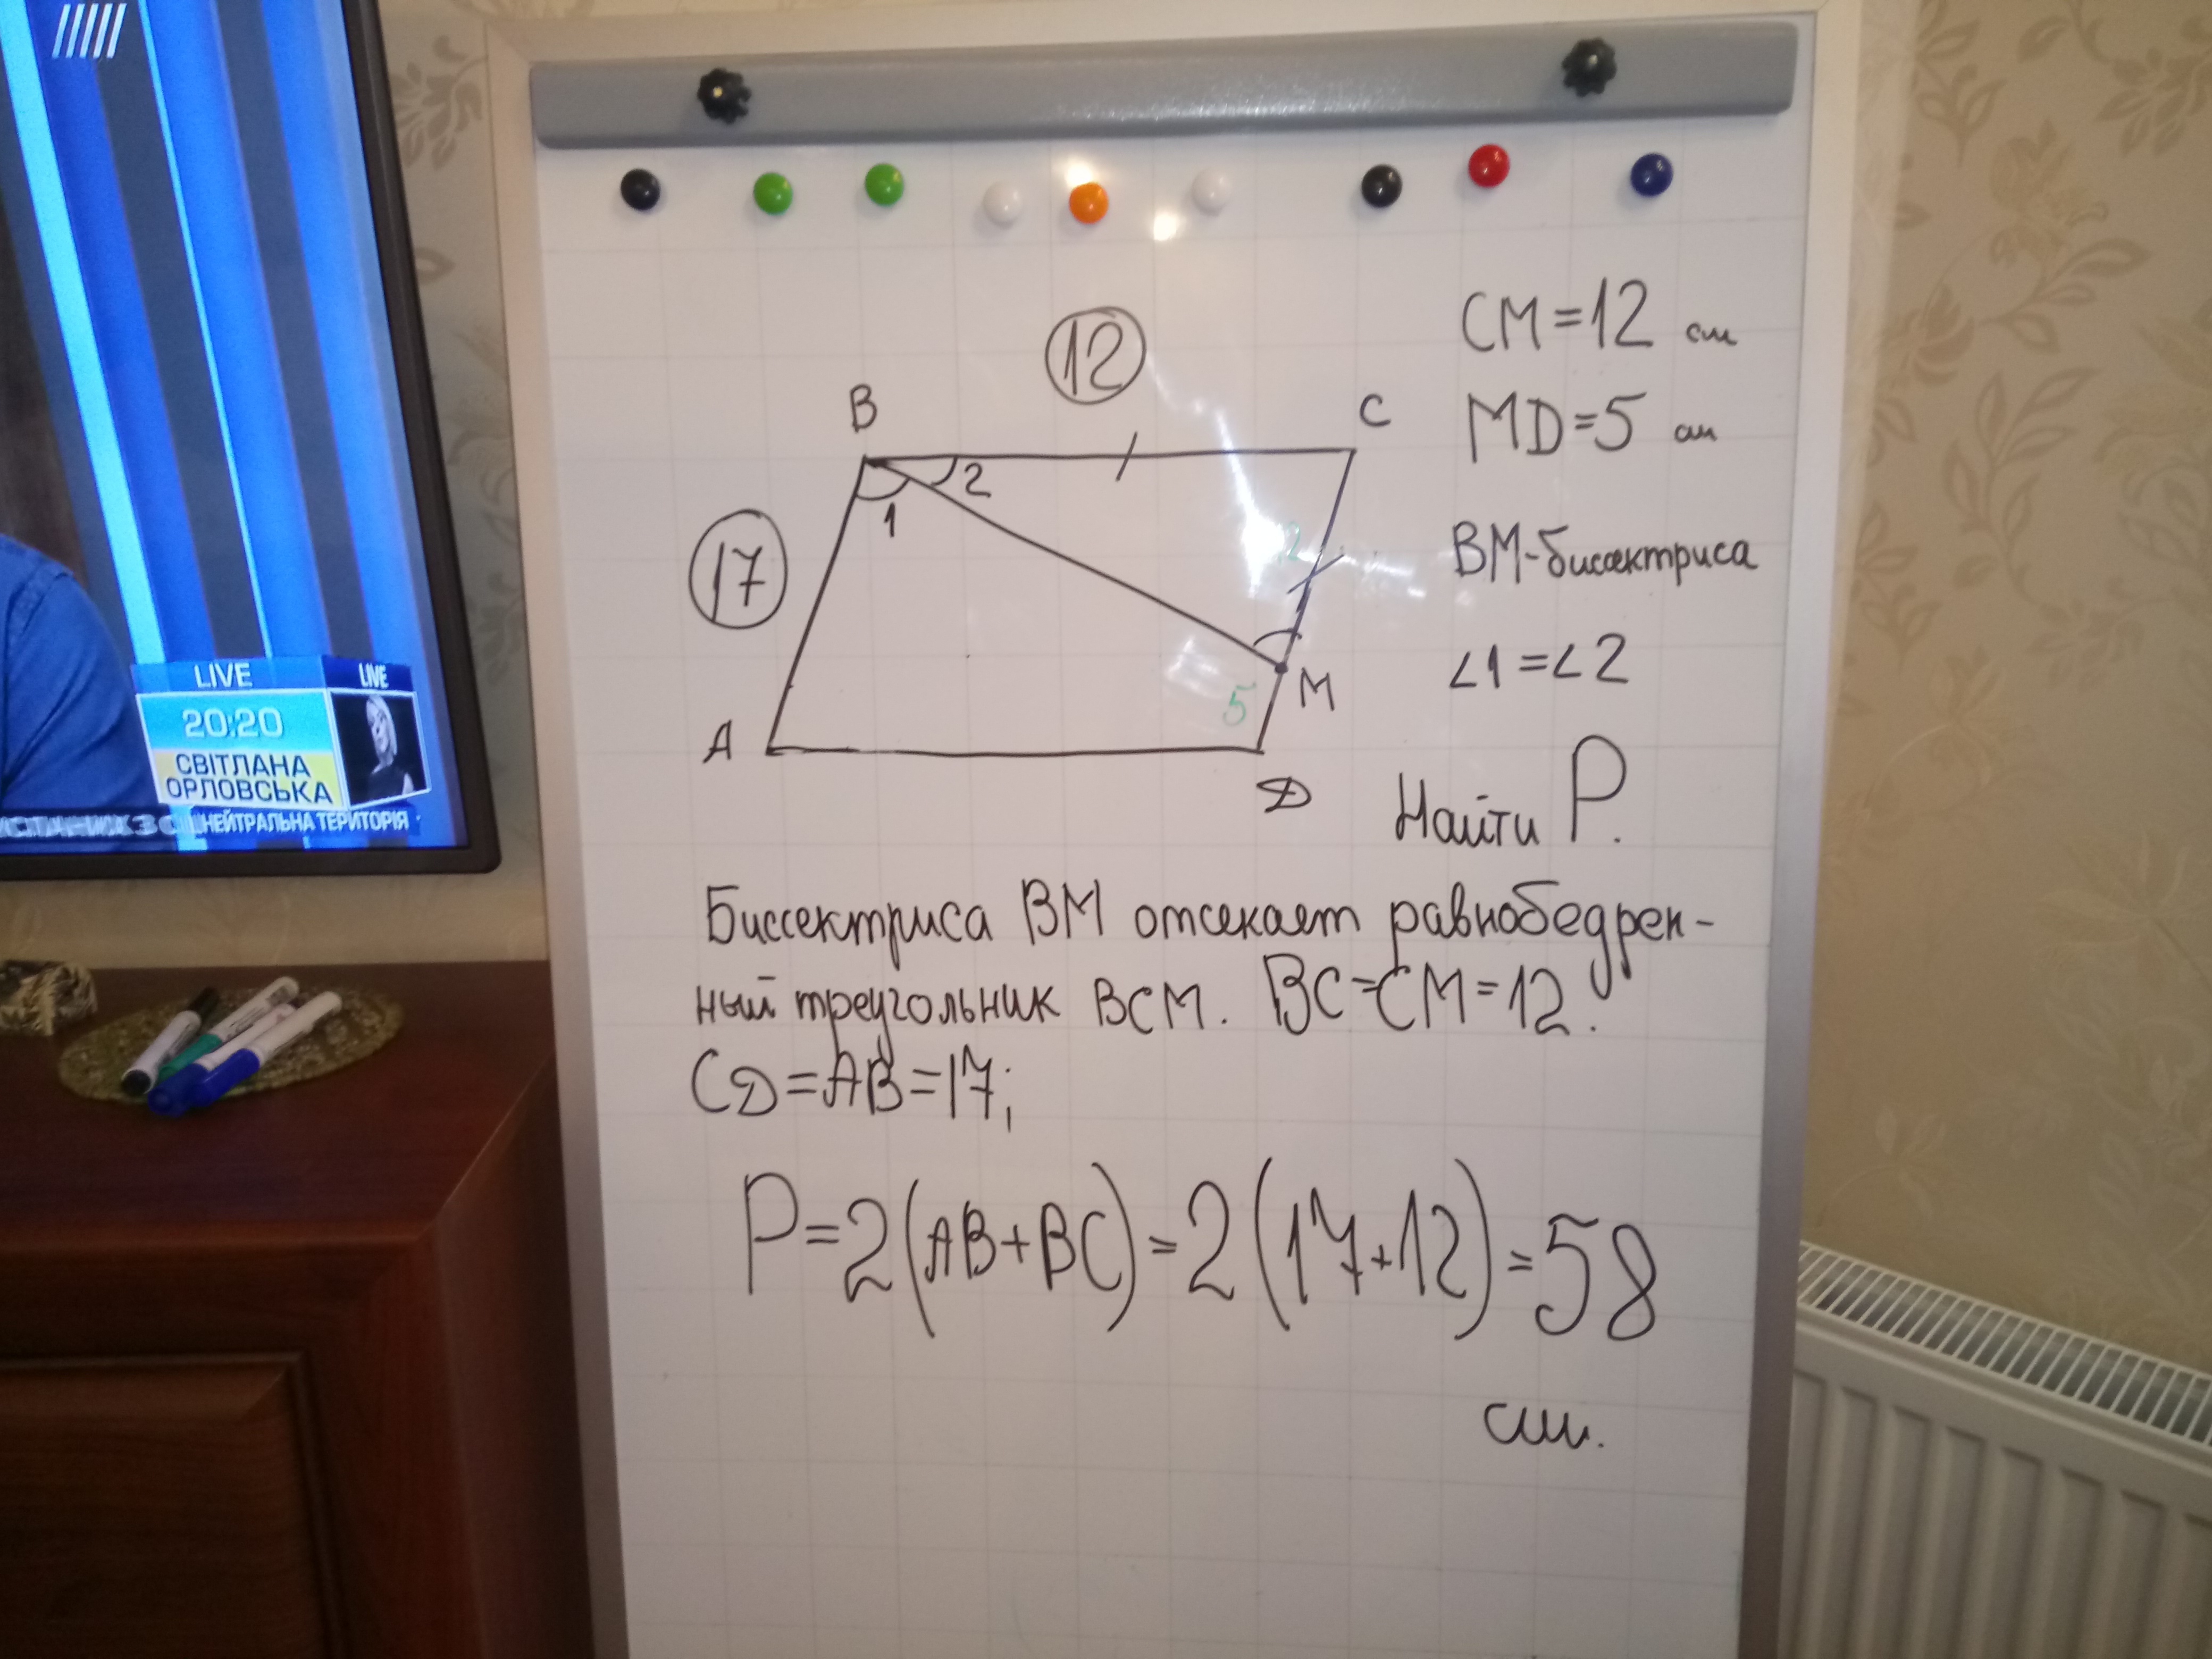 LIVE
LIVE
20:20
СВІТЛАНА
ОРЛОВСЬКА
НЕЙТРАЛЬНА ТЕРИТОРІЯ
12
B
C
2
1
17
M
5
A
D
CM=12 см
MD=5 см
BM-биссектриса
∠1=∠2
Найти P.
Биссектриса BM отсекает равнобедрен-
ный треугольник BCM. BC=CM=12.
CD=AB=17;
P=2(AB+BC)=2(17+12)=58
см.